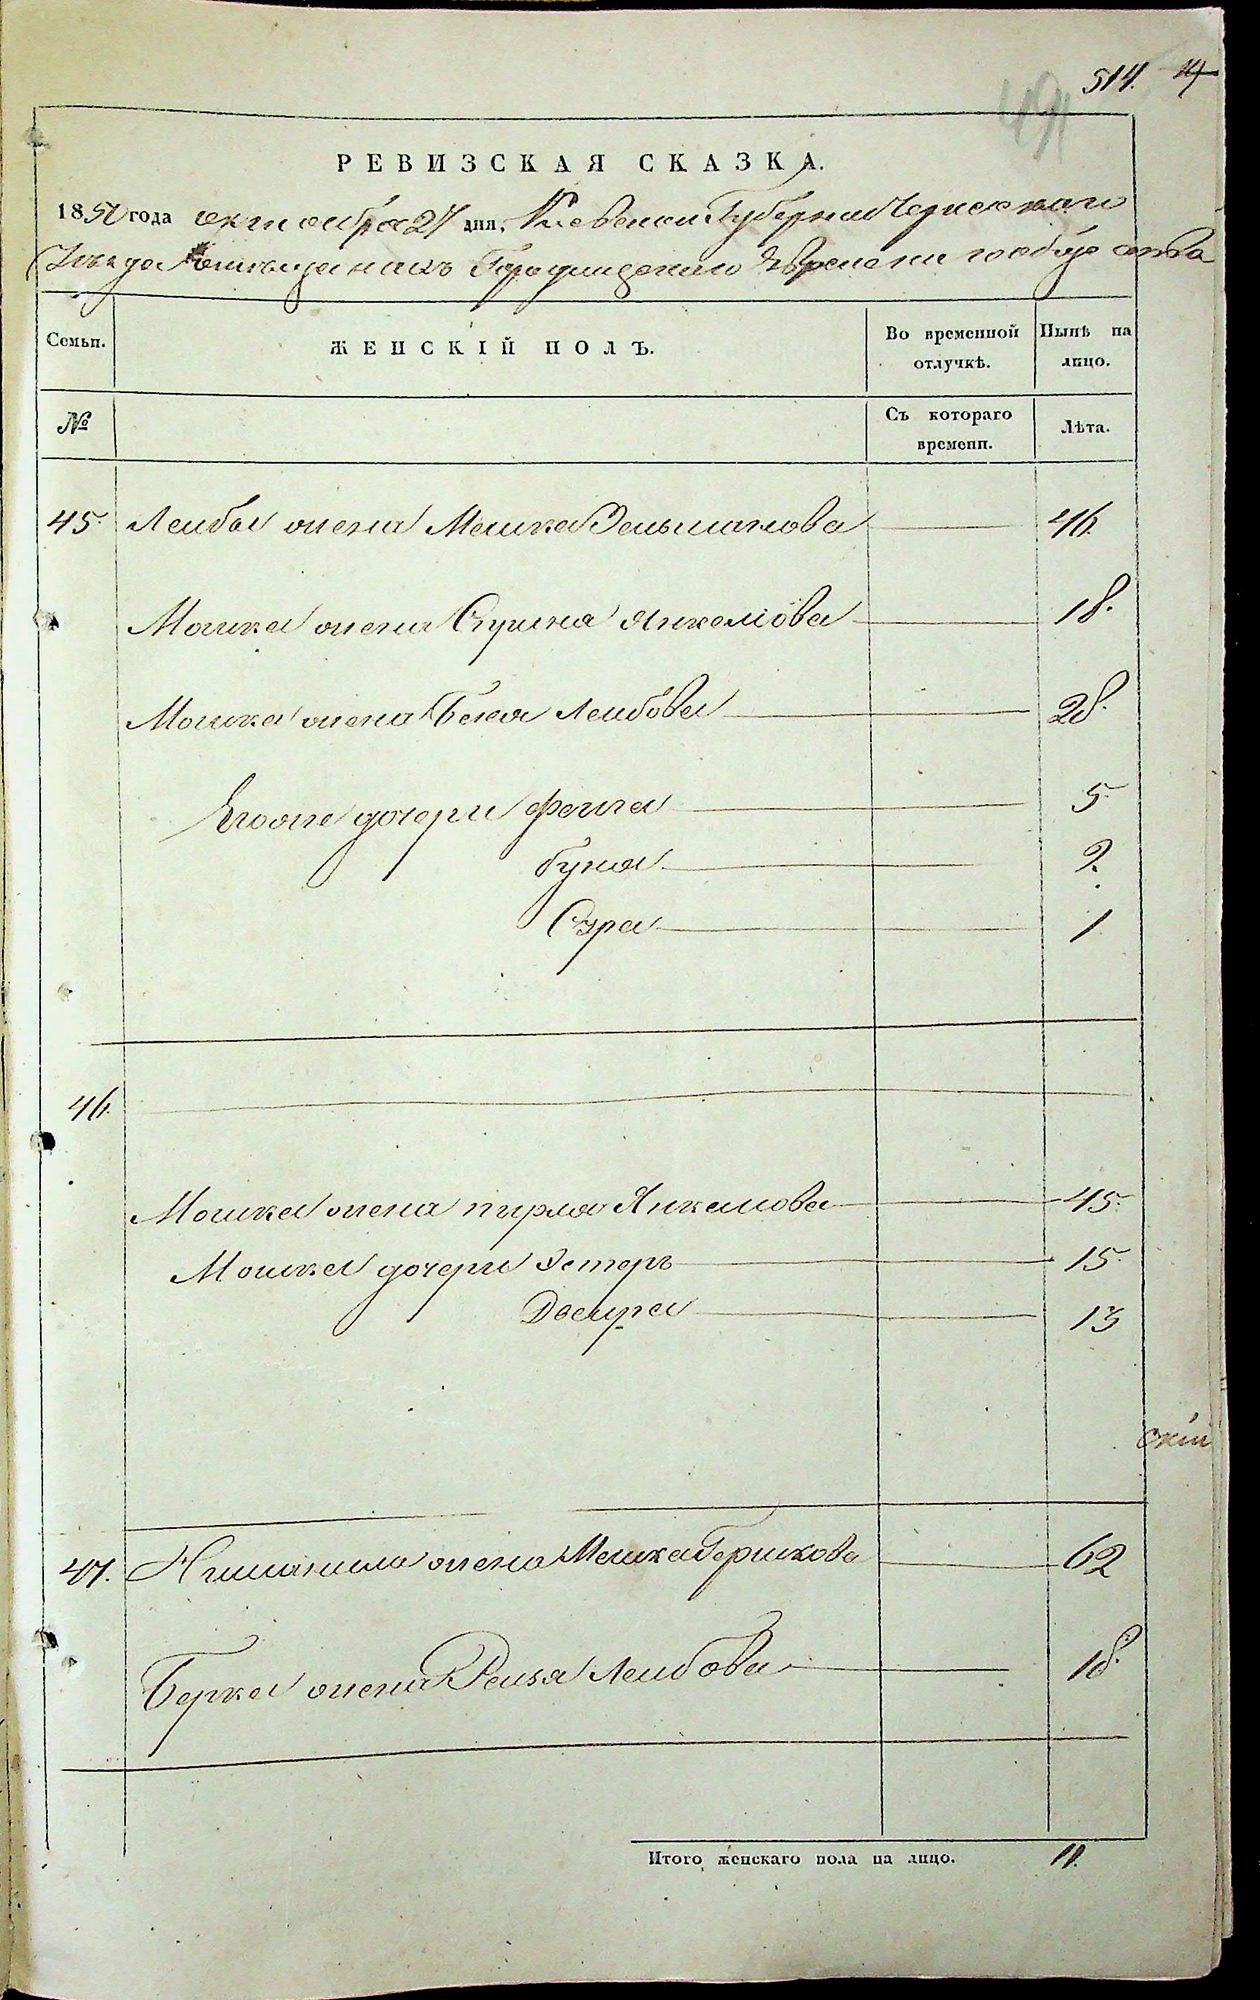 514.
491
РЕВИЗСКАЯ СКАЗКА.
1850 года октября 27 дня, Киевской Губернии Черкаскаго
Уезда о мещанахъ Городищенскаго Еврейскаго общества
Семьи. ЖЕНСКІЙ ПОЛЪ. Во временной отлучкѣ. Нынѣ на лицо.
№ Съ котораго времени. Лѣта.
45. Лейбы жена Мешка Зельманова 46.
Мошка жена Янкелiова 18.
Мошка жена Бейла Лейбова 28.
Его же дочери Фейга 5
Буня 2.
Сура 1
46.
Мошка жена Пирля Янкелiова 45.
Мошка дочери Эстеръ 15.
Двейра 13
скiй
47. жена Мешка Гершкова 62
Берка жена Рейзя Лейбова 18.
Итого женскаго пола на лицо. 11.